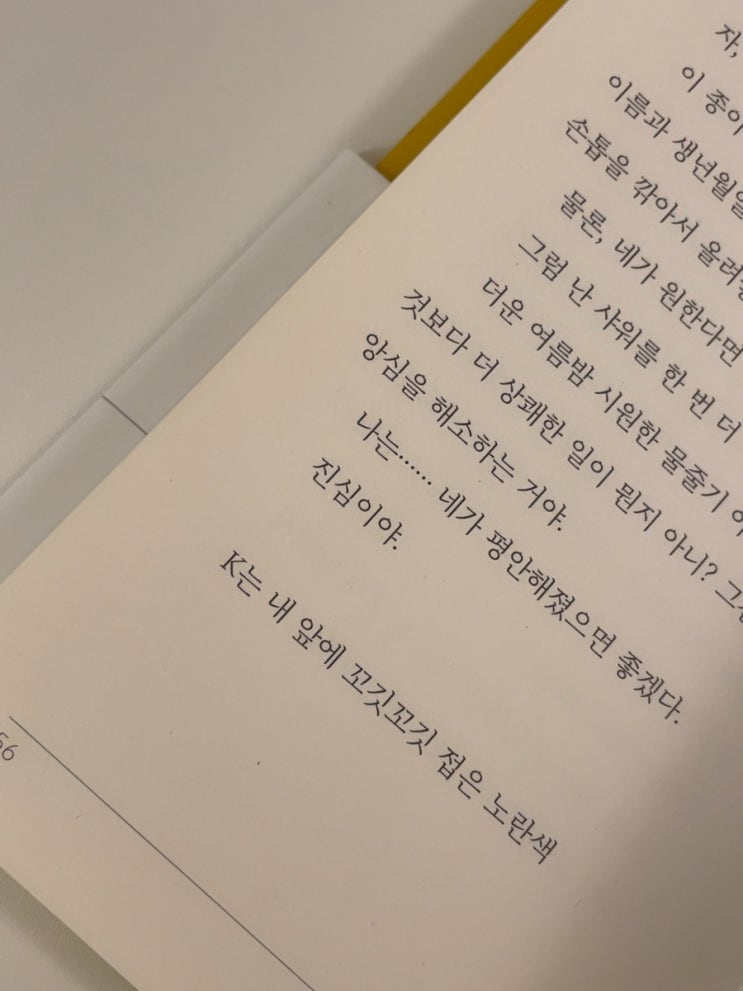 자,
이 종이
이름과 생년월일
손톱을 깎아서 올려
물론, 네가 원한다면
그럼 난 샤워를 한 번 더
더운 여름밤 시원한 물줄기
것보다 더 상쾌한 일이 뭔지 아니?
앙심을 해소하는 거야.
나는…… 네가 평안해졌으면 좋겠다.
진심이야.
K는 내 앞에 꼬깃꼬깃 접은 노란색
56